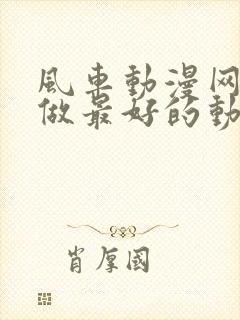 風車動漫网
做最好的動
肖厚國